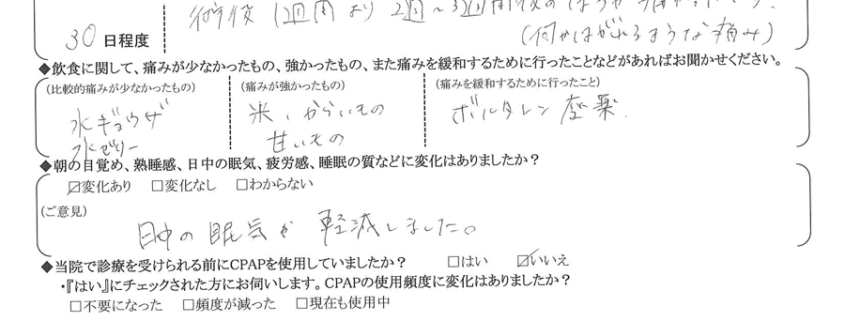 術後 1週間より 2週〜3週間後のほうが痛かったです。
30 日程度
(何かはがれるような痛み)
◆飲食に関して、痛みが少なかったもの、強かったもの、また痛みを緩和するために行ったことなどがあればお聞かせください。
(比較的痛みが少なかったもの) (痛みが強かったもの) (痛みを緩和するために行ったこと)
水ギョウザ 米、からいもの ボルタレン座薬
水ゼリー 甘いもの
◆朝の目覚め、熟睡感、日中の眠気、疲労感、睡眠の質などに変化はありましたか？
☑変化あり □変化なし □わからない
(ご意見)
日中の眠気が軽減しました。
◆当院で診療を受けられる前にCPAPを使用していましたか？ □はい ☑いいえ
・『はい』にチェックされた方にお伺いします。CPAPの使用頻度に変化はありましたか？
□不要になった □頻度が減った □現在も使用中